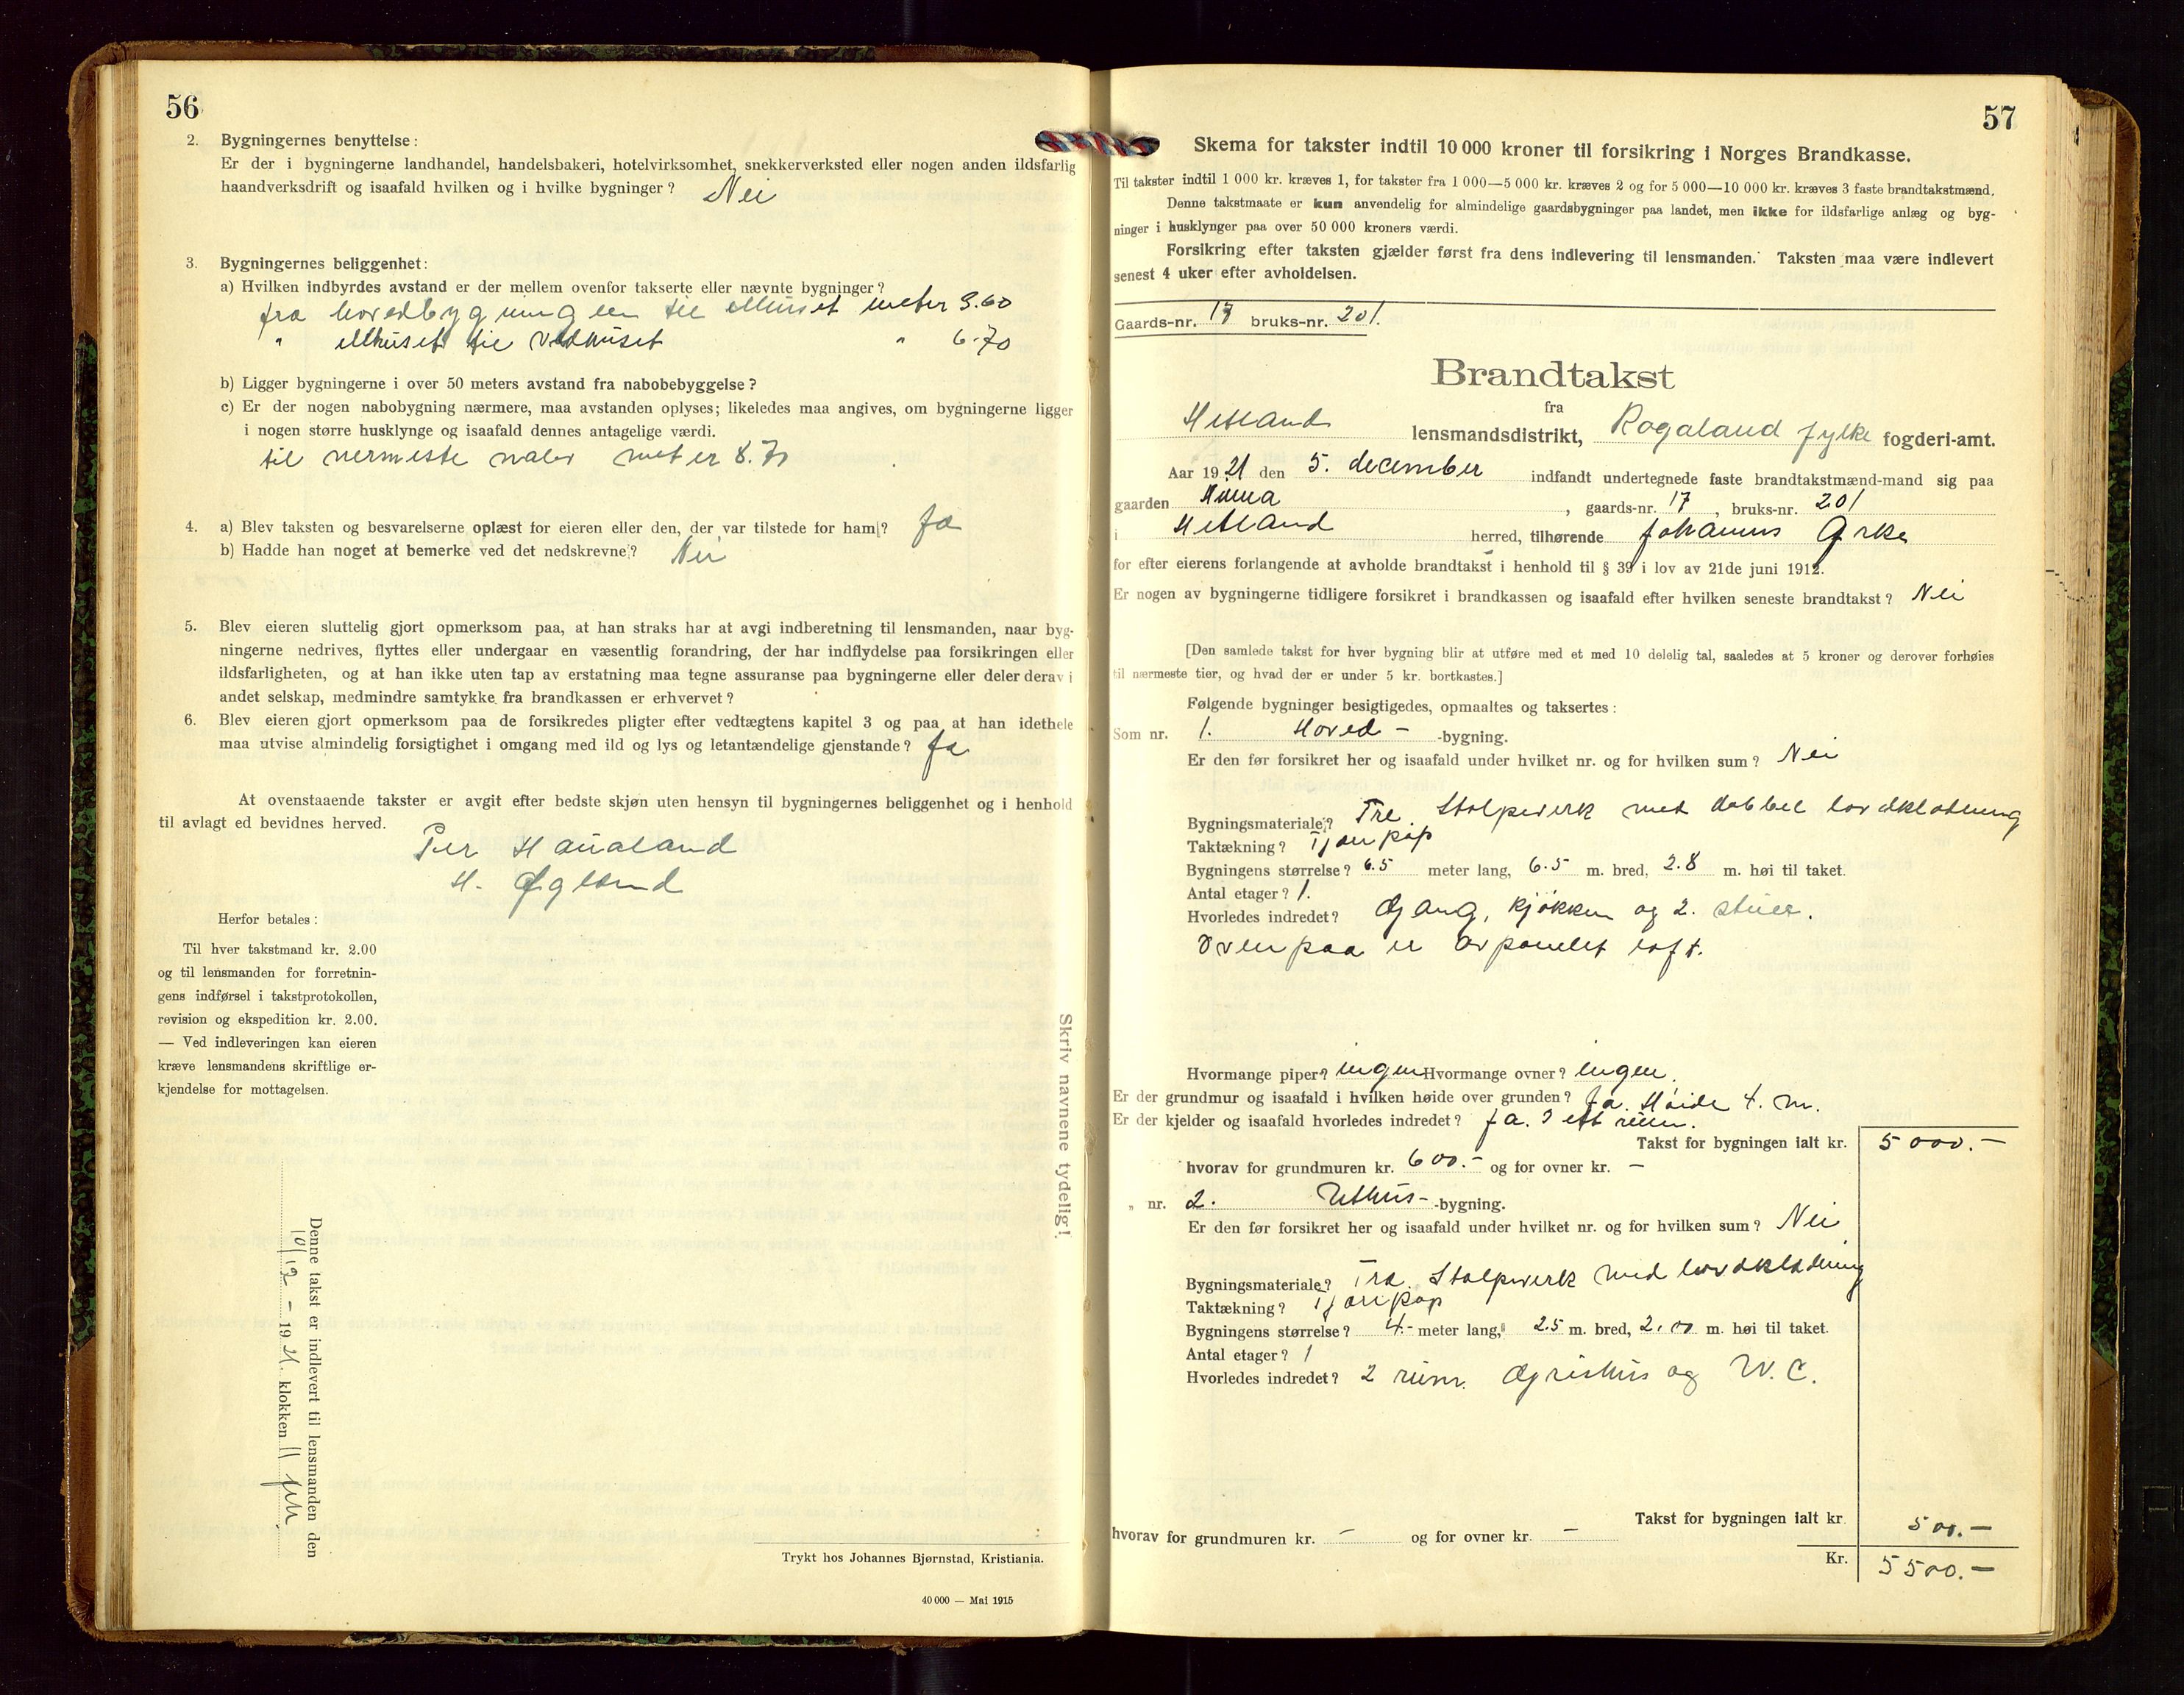 56
2. Bygningernes benyttelse:
Er der i bygningerne landhandel, handelsbakeri, hotelvirksomhet, snekkerverksted eller nogen anden ildsfarlig
haandverksdrift og isaafald hvilken og i hvilke bygninger? Nei
3. Bygningernes beliggenhet:
a) Hvilken indbyrdes avstand er der mellem ovenfor takserte eller nævnte bygninger?
fra hovedbygningen til uthuset meter 3.60
" uthuset til vedhuset " 6.70
b) Ligger bygningerne i over 50 meters avstand fra nabobebyggelse?
c) Er der nogen nabobygning nærmere, maa avstanden oplyses; likeledes maa angives, om bygningerne ligger
i nogen større husklynge og isaafald dennes antagelige værdi.
til nermeste nabo meter 8.70
4. a) Blev taksten og besvarelserne oplæst for eieren eller den, der var tilstede for ham? Ja
b) Hadde han noget at bemerke ved det nedskrevne? Nei
5. Blev eieren sluttelig gjort opmerksom paa, at han straks har at avgi indberetning til lensmanden, naar byg-
ningerne nedrives, flyttes eller undergaar en væsentlig forandring, der har indflydelse paa forsikringen eller
ildsfarligheten, og at han ikke uten tap av erstatning maa tegne assuranse paa bygningerne eller deler derav i
andet selskap, medmindre samtykke fra brandkassen er erhvervet?
6. Blev eieren gjort opmerksom paa de forsikredes pligter efter vedtægtens kapitel 3 og paa at han idethele
maa utvise almindelig forsigtighet i omgang med ild og lys og letantændelige gjenstande? Ja
At ovenstaaende takster er avgit efter bedste skjøn uten hensyn til bygningernes beliggenhet og i henhold
til avlagt ed bevidnes herved.
Per Haualand
H. Øglænd
Herfor betales:
Til hver takstmand kr. 2.00
og til lensmanden for forretnin-
gens indførsel i takstprotokollen,
revision og ekspedition kr. 2.00.
— Ved indleveringen kan eieren
kræve lensmandens skriftlige er-
kjendelse for mottagelsen.
Denne takst er indlevert til lensmanden den
10/12 - 1921. klokken 11 fm
Skriv navnene tydelig!
Trykt hos Johannes Bjørnstad, Kristiania.
40 000 — Mai 1915
57
Skema for takster indtil 10 000 kroner til forsikring i Norges Brandkasse.
Til takster indtil 1 000 kr. kræves 1, for takster fra 1 000—5 000 kr. kræves 2 og for 5 000—10 000 kr. kræves 3 faste brandtakstmænd.
Denne takstmaate er kun anvendelig for almindelige gaardsbygninger paa landet, men ikke for ildsfarlige anlæg og byg-
ninger i husklynger paa over 50 000 kroners værdi.
Forsikring efter taksten gjælder først fra dens indlevering til lensmanden. Taksten maa være indlevert
senest 4 uker efter avholdelsen.
Gaards-nr. 17 bruks-nr. 201.
Brandtakst
fra
Hetland lensmandsdistrikt, Rogaland fylke fogderi-amt.
Aar 1921 den 5. december indfandt undertegnede faste brandtakstmænd-mand sig paa
gaarden , gaards-nr. 17, bruks-nr. 201
i Hetland herred, tilhørende Johannes
for efter eierens forlangende at avholde brandtakst i henhold til § 39 i lov av 21de juni 1912.
Er nogen av bygningerne tidligere forsikret i brandkassen og isaafald efter hvilken seneste brandtakst? Nei
[Den samlede takst for hver bygning blir at utføre med et med 10 delelig tal, saaledes at 5 kroner og derover forhøies
til nærmeste tier, og hvad der er under 5 kr. bortkastes.]
Følgende bygninger besigtigedes, opmaaltes og taksertes:
Som nr. 1. Hoved- -bygning.
Er den før forsikret her og isaafald under hvilket nr. og for hvilken sum? Nei
Bygningsmateriale? Tre. Stolpeverk met dobbel bordklædning
Taktækning? Tjærepap
Bygningens størrelse? 6.5 meter lang, 6.5 m. bred, 2.8 m. høi til taket.
Antal etager? 1.
Hvorledes indredet? Gang, kjøkken og 2. stuer.
Ovenpaa er avpanelet loft.
Hvormange piper? ingen Hvormange ovner? ingen.
Er der grundmur og isaafald i hvilken høide over grunden? Ja. Høide 4. m.
Er der kjelder og isaafald hvorledes indredet? Ja. I ett rum.
Takst for bygningen ialt kr. 5000.-
hvorav for grundmuren kr. 600.- og for ovner kr. -
„ nr. 2. Uthus- -bygning.
Er den før forsikret her og isaafald under hvilket nr. og for hvilken sum? Nei
Bygningsmateriale? Træ. Stolpeverk med bordklædning
Taktækning? Tjærepap
Bygningens størrelse? 4.- meter lang, 2.5 m. bred, 2.00 m. høi til taket.
Antal etager? 1
Hvorledes indredet? 2 rum. Grishus og W.C.
Takst for bygningen ialt kr. 500.-
hvorav for grundmuren kr. - og for ovner kr. -
Kr. 5500.-